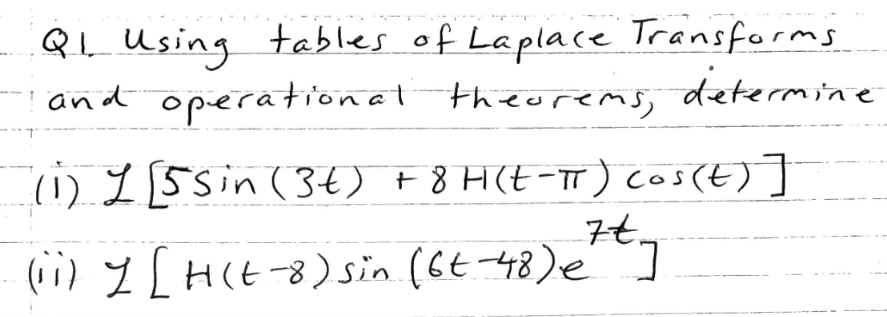 Q1 Using tables of Laplace Transforms
and operational theorems, determine
(i) ℒ[5sin(3t) + 8H(t-π)cos(t)]
(ii) ℒ[H(t-8)sin(6t-48)e^{7t}]